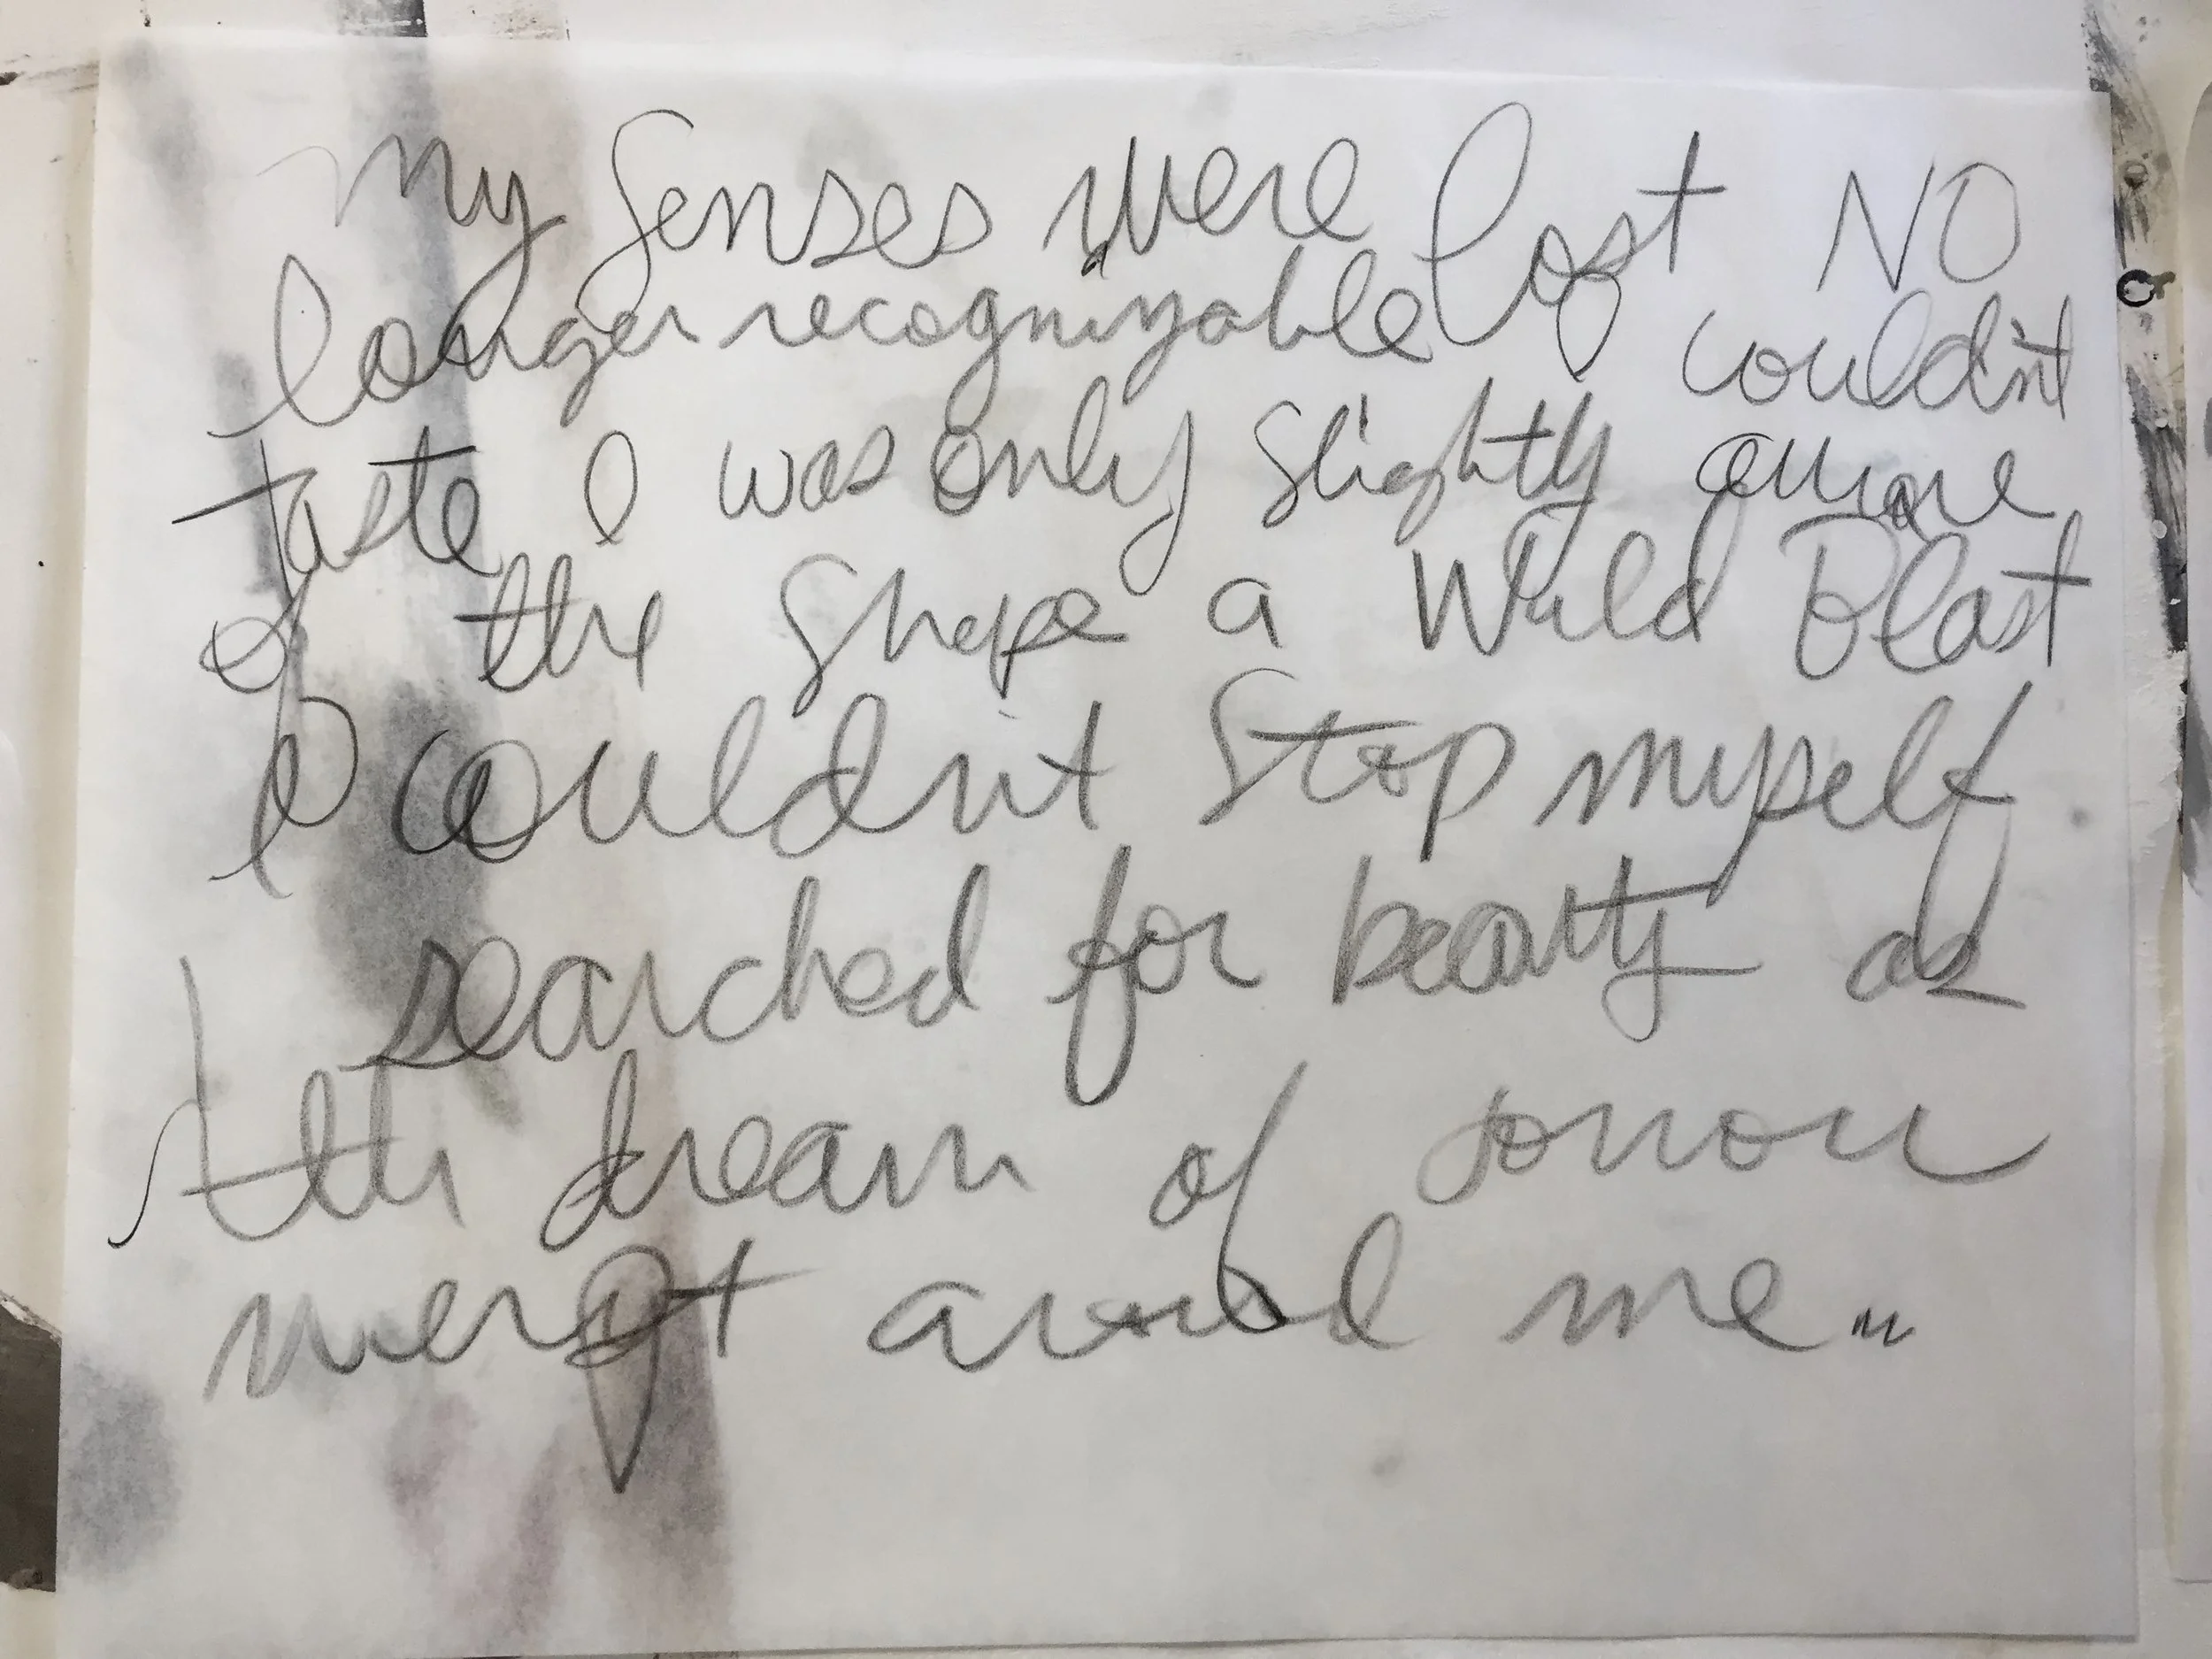 my senses were lost NO
longer recognizable couldn't
taste I was only slightly aware
of the shape a Wild Blast
I couldn't stop myself
searched for beauty as
the dream of sorrow
wept around me